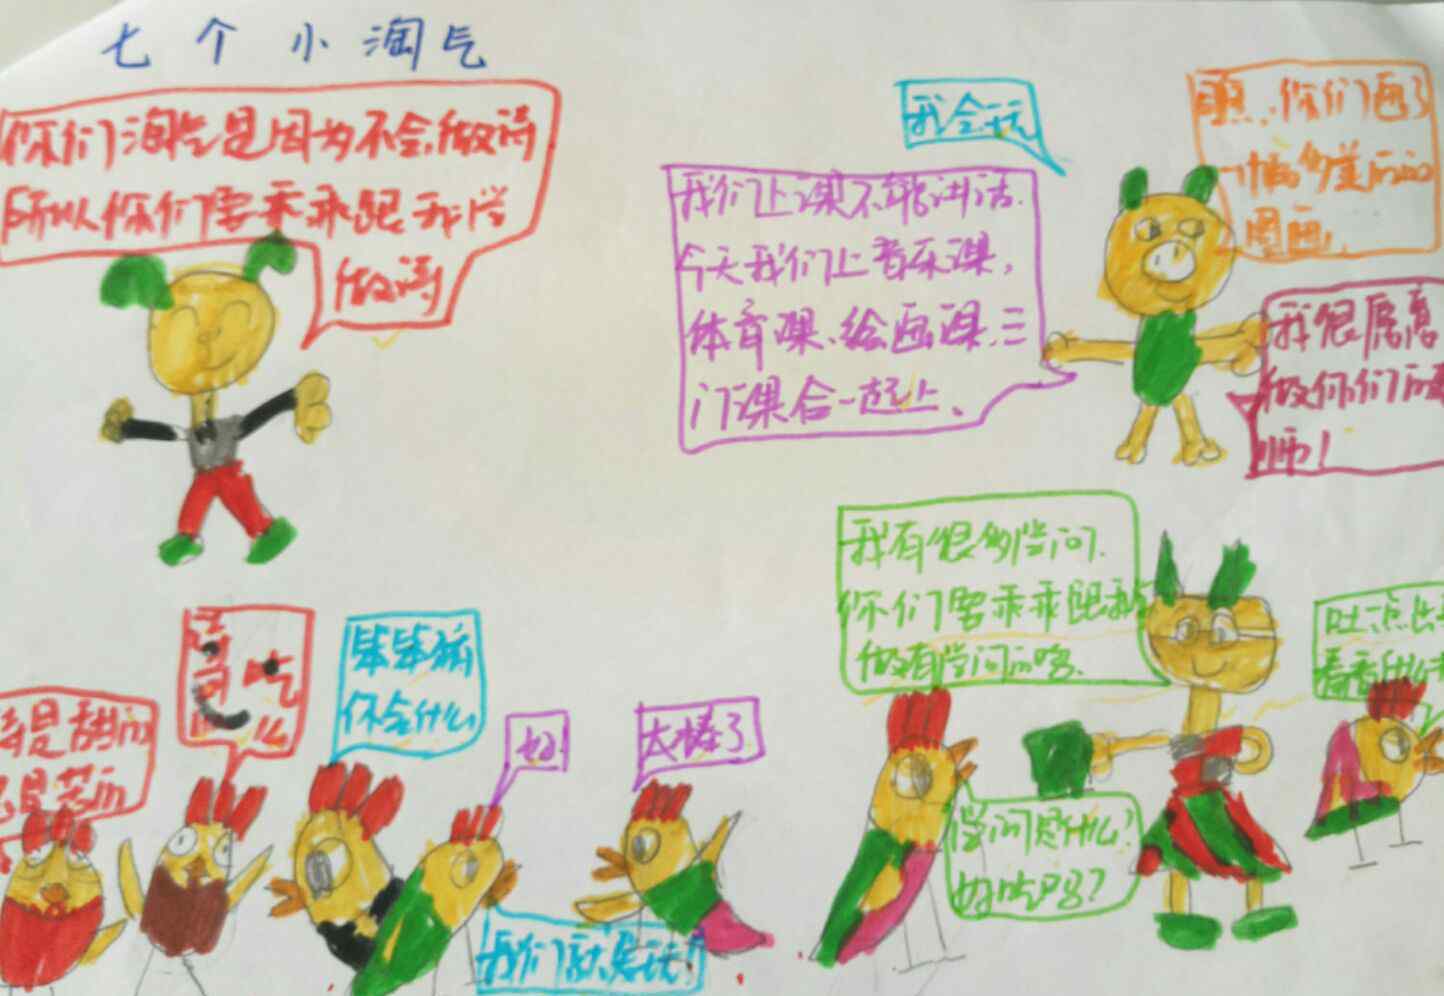 七个小淘气
你们淘气是因为不会做诗
所以你们要乖乖跟我学
做诗
我会玩
我们上课不能讲话.
今天我们上音乐课,
体育课、绘画课.三
门课合一起上.
你们画了
图画!
我很愿意
做你们的
师!
我有很多学问.
你们要乖乖跟我
做有学问的
诗
吃
么
笨笨猪
你会什么
好
太棒了
是甜的
是苦的
学问是什么?
好吃吗?
我们就是玩!
吐点出
看看什么